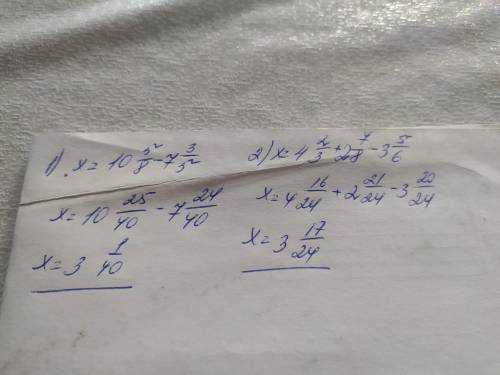 1). x = 10 5/8 - 7 3/5
x = 10 25/40 - 7 24/40
x = 3 1/40
2) x = 4 2/3 + 2 7/8 - 3 5/6
x = 4 16/24 + 2 21/24 - 3 20/24
x = 3 17/24